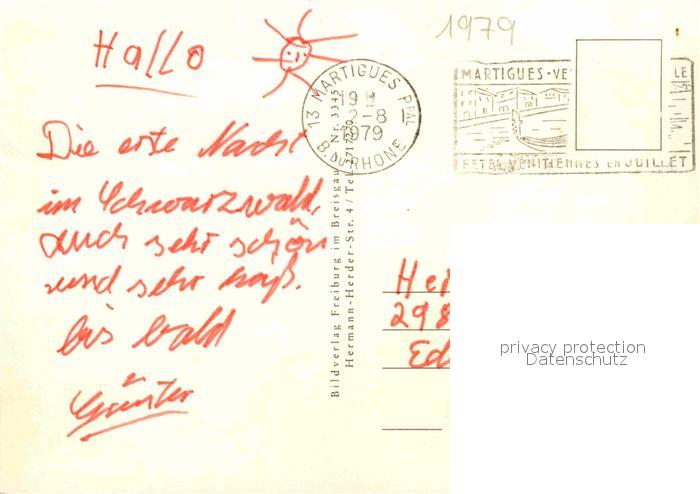 1979
Hallo
13 MARTIGUES PPAL
19 H
2-8
1979
B. DU RHONE
MARTIGUES·VE LE
FETES VENITIENNES EN JUILLET
Die erste Nacht
im Schwarzwald,
auch sehr schön
und sehr naß.
bis bald
Günter
Bildverlag Freiburg im Breisgau
Hermann-Herder-Str. 4 / Tel.
Hei
298
Ed
privacy protection
Datenschutz